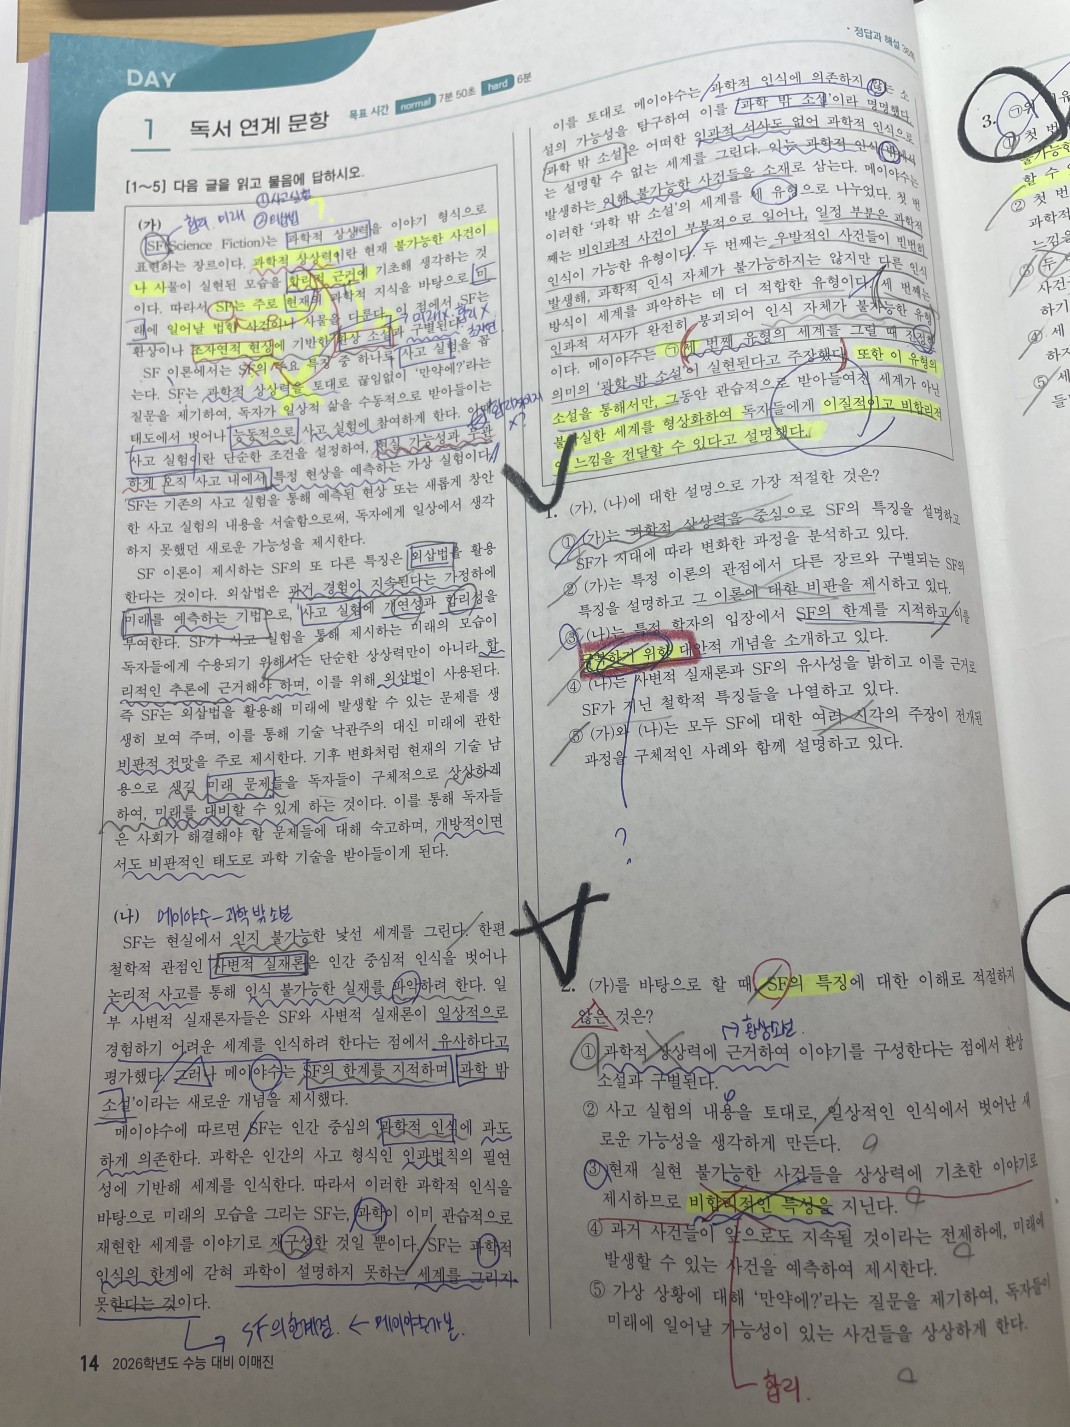 DAY
1 독서 연계 문항
목표 시간 normal 7분 50초 hard 6분
· 정답과 해설 36쪽
[1~5] 다음 글을 읽고 물음에 답하시오.
①사고실험
합리 미래 ②외삽법
(가)
SF(Science Fiction)는 과학적 상상력을 이야기 형식으로
표현하는 장르이다. 과학적 상상력이란 현재 불가능한 사건이
나 사물이 실현된 모습을 합리적 근거에 기초해 생각하는 것
이다. 따라서 SF는 주로 현재의 과학적 지식을 바탕으로 미
래에 일어날 법한 사건이나 사물을 다룬다. 이 점에서 SF는
환상이나 초자연적 현상에 기반한 환상 소설과 구별된다.
SF 이론에서는 SF의 주요 특징 중 하나로 사고 실험을 꼽
는다. SF는 과학적 상상력을 토대로 끊임없이 '만약에?'라는
질문을 제기하여, 독자가 일상적 삶을 수동적으로 받아들이는
태도에서 벗어나 능동적으로 사고 실험에 참여하게 한다.
사고 실험이란 단순한 조건을 설정하여, 현실 가능성과 무관
하게 오직 사고 내에서 특정 현상을 예측하는 가상 실험이다.
SF는 기존의 사고 실험을 통해 예측된 현상 또는 새롭게 창안
한 사고 실험의 내용을 서술함으로써, 독자에게 일상에서 생각
하지 못했던 새로운 가능성을 제시한다.
SF 이론이 제시하는 SF의 또 다른 특징은 외삽법을 활용
한다는 것이다. 외삽법은 과거 경험이 지속된다는 가정하에
미래를 예측하는 기법으로, 사고 실험에 개연성과 합리성을
부여한다. SF가 사고 실험을 통해 제시하는 미래의 모습이
독자들에게 수용되기 위해서는 단순한 상상력만이 아니라 합
리적인 추론에 근거해야 하며, 이를 위해 외삽법이 사용된다.
즉 SF는 외삽법을 활용해 미래에 발생할 수 있는 문제를 생
생히 보여 주며, 이를 통해 기술 낙관주의 대신 미래에 관한
비판적 전망을 주로 제시한다. 기후 변화처럼 현재의 기술 남
용으로 생길 미래 문제들을 독자들이 구체적으로 상상하게
하여, 미래를 대비할 수 있게 하는 것이다. 이를 통해 독자들
은 사회가 해결해야 할 문제들에 대해 숙고하며, 개방적이면
서도 비판적인 태도로 과학 기술을 받아들이게 된다.
(나) 메이야수 - 과학 밖 소설
SF는 현실에서 인지 불가능한 낯선 세계를 그린다. 한편
철학적 관점인 사변적 실재론은 인간 중심적 인식을 벗어나
논리적 사고를 통해 인식 불가능한 실재를 파악하려 한다. 일
부 사변적 실재론자들은 SF와 사변적 실재론이 일상적으로
경험하기 어려운 세계를 인식하려 한다는 점에서 유사하다고
평가했다. 그러나 메이야수는 SF의 한계를 지적하며 '과학 밖
소설'이라는 새로운 개념을 제시했다.
메이야수에 따르면 SF는 인간 중심의 과학적 인식에 과도
하게 의존한다. 과학은 인간의 사고 형식인 인과법칙의 필연
성에 기반해 세계를 인식한다. 따라서 이러한 과학적 인식을
바탕으로 미래의 모습을 그리는 SF는, 과학이 이미 관습적으로
재현한 세계를 이야기로 재구성한 것일 뿐이다. SF는 과학적
인식의 한계에 갇혀 과학이 설명하지 못하는 세계를 그리지
못한다는 것이다.
SF의 한계점. ← 메이야수가 봄.
14 2026학년도 수능 대비 이매진
이를 토대로 메이야수는 과학적 인식에 의존하지 않는 소
설의 가능성을 탐구하여 이를 '과학 밖 소설'이라 명명했다.
'과학 밖 소설'은 어떠한 인과적 서사도 없어 과학적 인식으로
는 설명할 수 없는 세계를 그린다. 이는 과학적 인식 밖에서
발생하는 이해 불가능한 사건들을 소재로 삼는다. 메이야수는
이러한 '과학 밖 소설'의 세계를 세 유형으로 나누었다. 첫 번
째는 비인과적 사건이 부분적으로 일어나, 일정 부분은 과학적
인식이 가능한 유형이다. 두 번째는 우발적인 사건들이 빈번히
발생해, 과학적 인식 자체가 불가능하지는 않지만 다른 인식
방식이 세계를 파악하는 데 더 적합한 유형이다. 세 번째는
인과적 서사가 완전히 붕괴되어 인식 자체가 불가능한 유형
이다. 메이야수는 ㉠세 번째 유형의 세계를 그릴 때 진정한
의미의 '과학 밖 소설'이 실현된다고 주장했다. 또한 이 유형의
소설을 통해서만, 그동안 관습적으로 받아들여진 세계가 아닌
불확실한 세계를 형상화하여 독자들에게 이질적이고 비합리적
인 느낌을 전달할 수 있다고 설명했다.
1. (가), (나)에 대한 설명으로 가장 적절한 것은?
① (가)는 과학적 상상력을 중심으로 SF의 특징을 설명하고
SF가 시대에 따라 변화한 과정을 분석하고 있다.
② (가)는 특정 이론의 관점에서 다른 장르와 구별되는 SF의
특징을 설명하고 그 이론에 대한 비판을 제시하고 있다.
③ (나)는 특정 학자의 입장에서 SF의 한계를 지적하고 이를
극복하기 위한 대안적 개념을 소개하고 있다.
④ (나)는 사변적 실재론과 SF의 유사성을 밝히고 이를 근거로
SF가 지닌 철학적 특징들을 나열하고 있다.
⑤ (가)와 (나)는 모두 SF에 대한 여러 시각의 주장이 전개된
과정을 구체적인 사례와 함께 설명하고 있다.
?
2. (가)를 바탕으로 할 때, SF의 특징에 대한 이해로 적절하지
않은 것은?
환상소설.
① 과학적 상상력에 근거하여 이야기를 구성한다는 점에서 환상
소설과 구별된다.
② 사고 실험의 내용을 토대로, 일상적인 인식에서 벗어난 새
로운 가능성을 생각하게 만든다.
③ 현재 실현 불가능한 사건들을 상상력에 기초한 이야기로
제시하므로 비합리적인 특성을 지닌다.
④ 과거 사건들이 앞으로도 지속될 것이라는 전제하에, 미래에
발생할 수 있는 사건을 예측하여 제시한다.
⑤ 가상 상황에 대해 '만약에?'라는 질문을 제기하여, 독자들이
미래에 일어날 가능성이 있는 사건들을 상상하게 한다.
합리.
3. ㉠
① 첫 번
불가능한
할 수
② 첫 번
과학적
느낌을
③ 두
사건
하기
④ 세
하지
⑤ 세